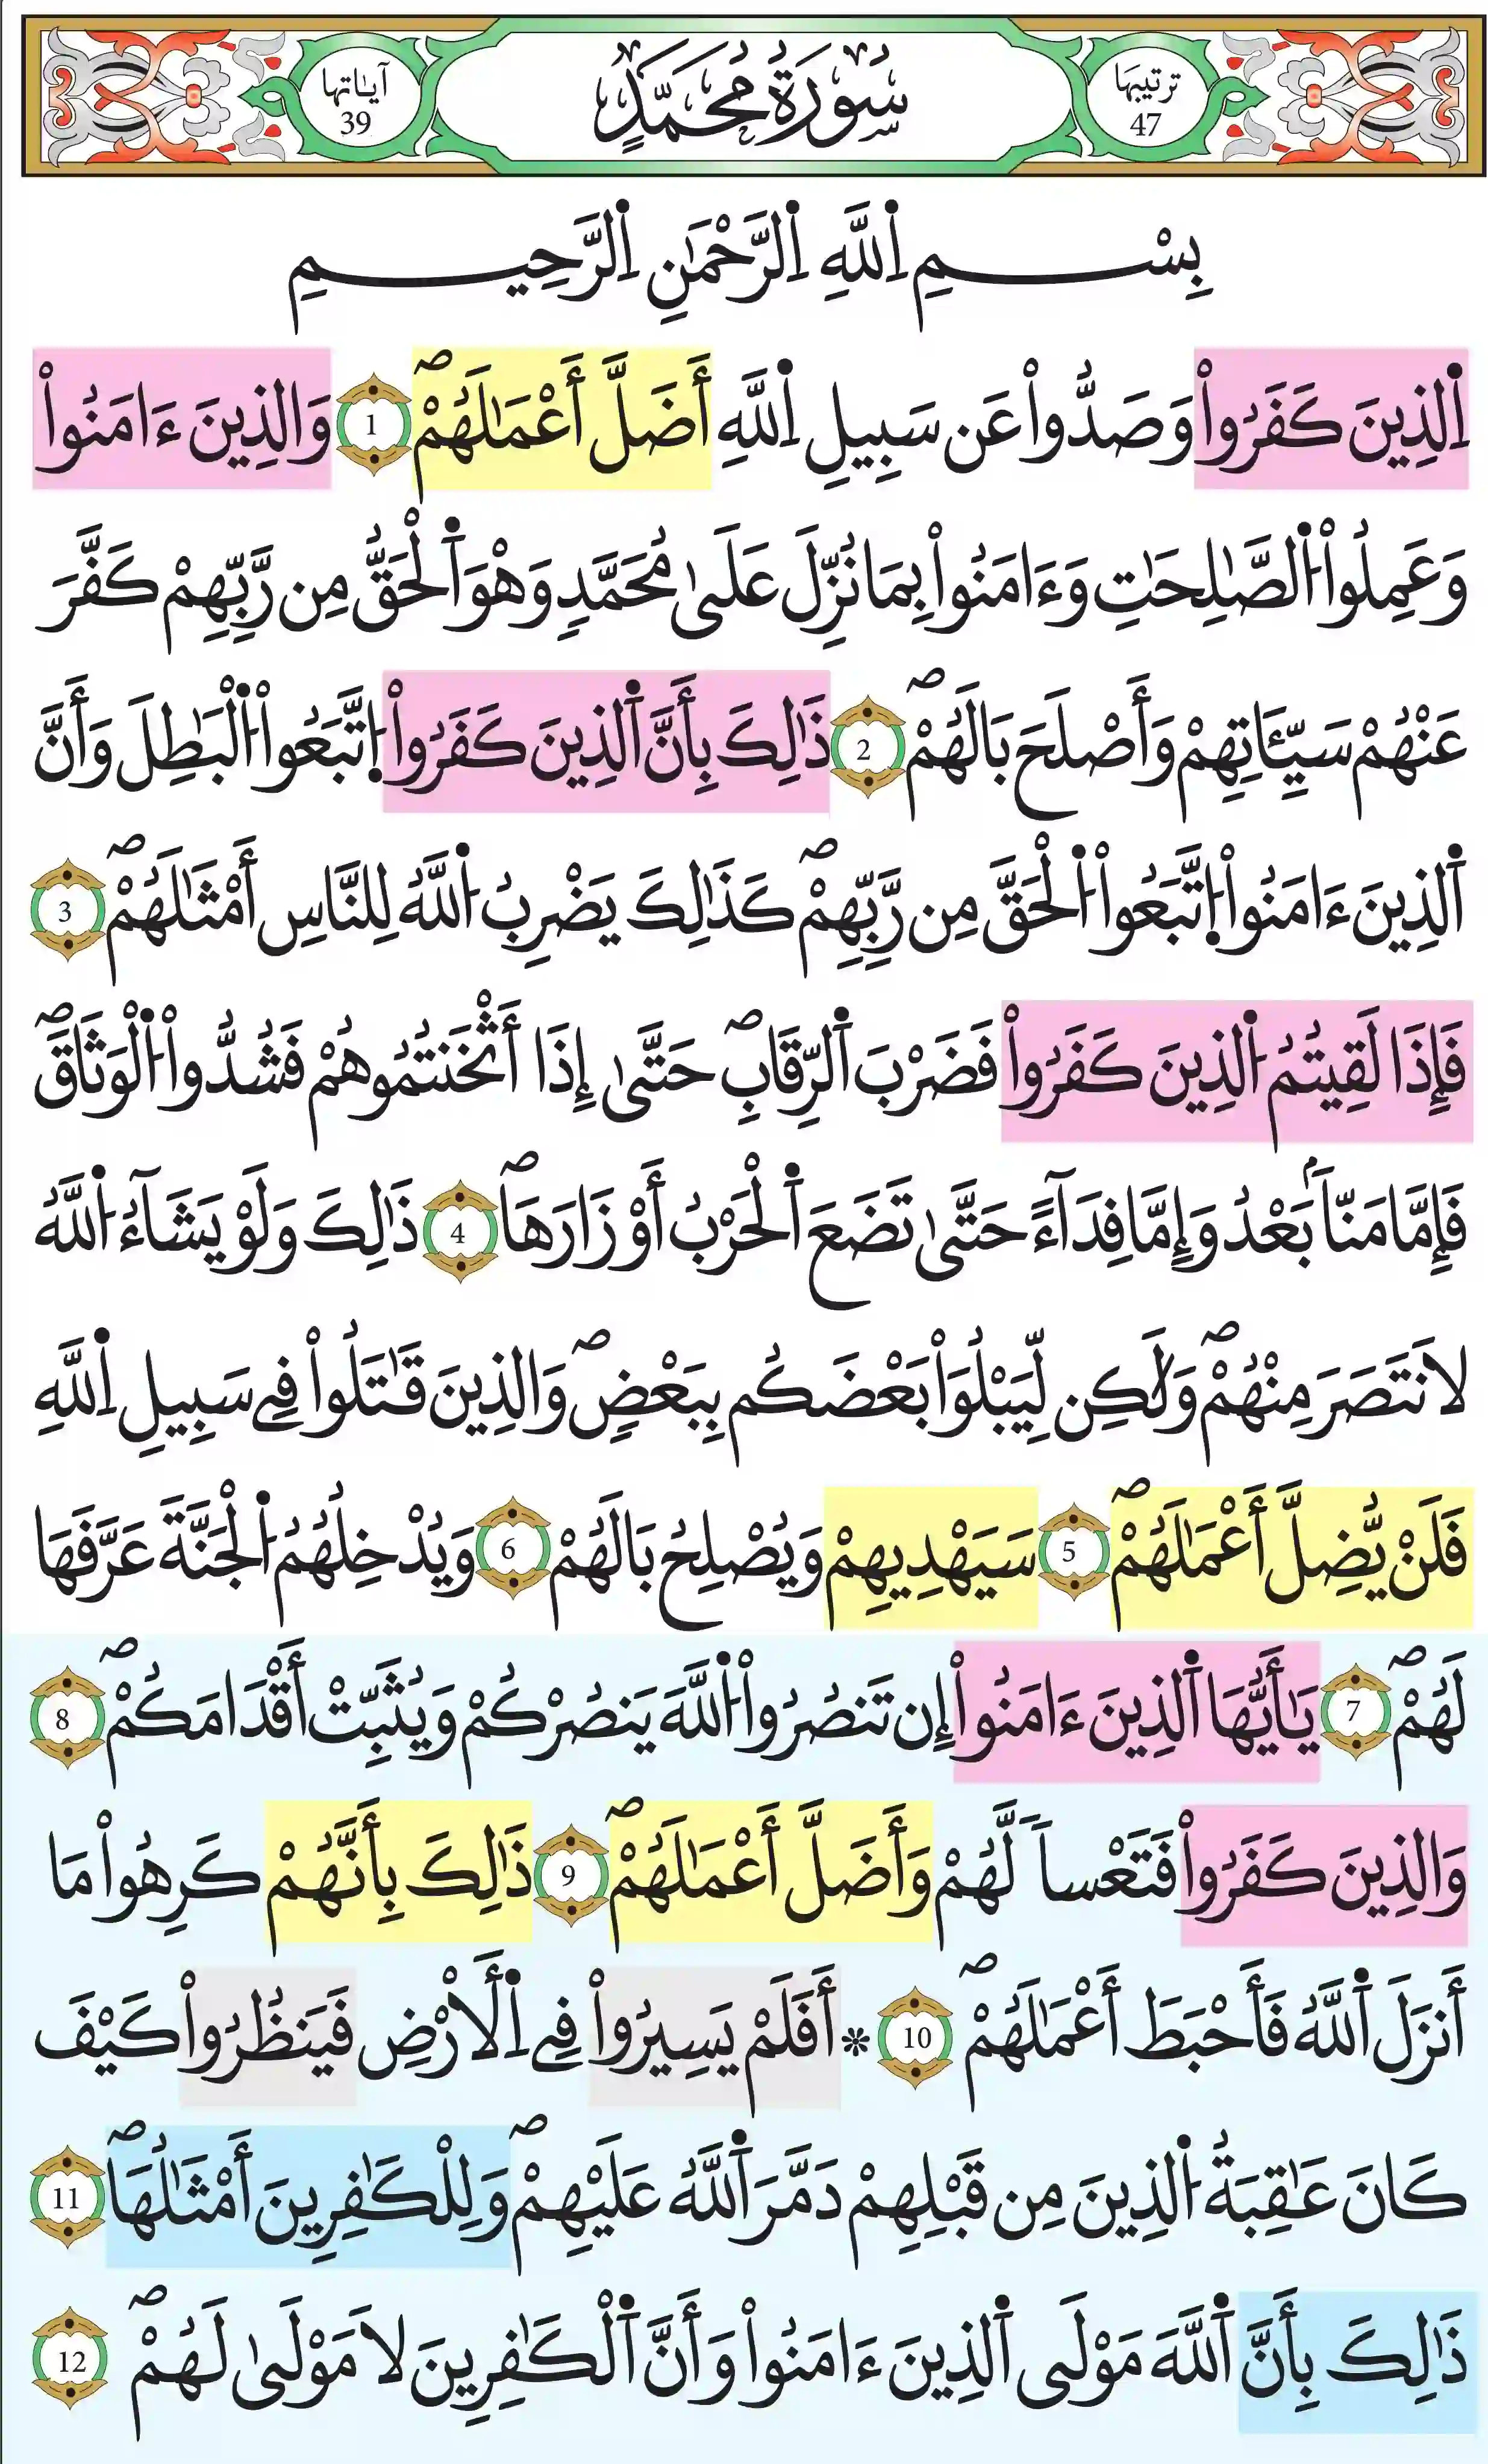 ترتيبها
47
سُورَةُ مُحَمَّدٍ
آياتها
39
بِسْمِ اِ۬للَّهِ اِ۬لرَّحْمَٰنِ اِ۬لرَّحِيمِ
اِ۬لذِينَ كَفَرُواْ وَصَدُّواْ عَن سَبِيلِ اِ۬للَّهِ أَضَلَّ أَعْمَٰلَهُمْۖ 1 وَالذِينَ ءَامَنُواْ
وَعَمِلُواْ اُ۬لصَّٰلِحَٰتِ وَءَامَنُواْ بِمَا نُزِّلَ عَلَىٰ مُحَمَّدٍ وَهْوَ اَ۬لْحَقُّ مِن رَّبِّهِمْ كَفَّرَ
عَنْهُمْ سَيِّـَٔاتِهِمْ وَأَصْلَحَ بَالَهُمْۖ 2 ذَٰلِكَ بِأَنَّ اَ۬لذِينَ كَفَرُواْ اُ۪تَّبَعُواْ اُ۬لْبَٰطِلَ وَأَنَّ
اَ۬لذِينَ ءَامَنُواْ اُ۪تَّبَعُواْ اُ۬لْحَقَّ مِن رَّبِّهِمْۖ كَذَٰلِكَ يَضْرِبُ اُ۬للَّهُ لِلنَّاسِ أَمْثَٰلَهُمْۖ 3
فَإِذَا لَقِيتُمُ اُ۬لذِينَ كَفَرُواْ فَضَرْبَ اَ۬لرِّقَابِۖ حَتَّىٰ إِذَا أَثْخَنتُمُوهُمْ فَشُدُّواْ اُ۬لْوَثَاقَۖ
فَإِمَّا مَنّاَۢ بَعْدُ وَإِمَّا فِدَآءً حَتَّىٰ تَضَعَ اَ۬لْحَرْبُ أَوْزَارَهَاۖ 4 ذَٰلِكَ وَلَوْ يَشَآءُ اُ۬للَّهُ
لَانتَصَرَ مِنْهُمْۖ وَلَٰكِن لِّيَبْلُوَاْ بَعْضَكُم بِبَعْضٍۖ وَالذِينَ قَٰتَلُواْ فِے سَبِيلِ اِ۬للَّهِ
فَلَنْ يُّضِلَّ أَعْمَٰلَهُمْۖ 5 سَيَهْدِيهِمْ وَيُصْلِحُ بَالَهُمْ 6 وَيُدْخِلُهُمُ اُ۬لْجَنَّةَ عَرَّفَهَا
لَهُمْۖ 7 يَٰأَيُّهَا اَ۬لذِينَ ءَامَنُواْ إِن تَنصُرُواْ اُ۬للَّهَ يَنصُرْكُمْ وَيُثَبِّتْ أَقْدَامَكُمْۖ 8
وَالذِينَ كَفَرُواْ فَتَعْساً لَّهُمْ وَأَضَلَّ أَعْمَٰلَهُمْۖ 9 ذَٰلِكَ بِأَنَّهُمْ كَرِهُواْ مَا
أَنزَلَ اَ۬للَّهُ فَأَحْبَطَ أَعْمَٰلَهُمْۖ 10 * أَفَلَمْ يَسِيرُواْ فِے اِ۬لْأَرْضِ فَيَنظُرُواْ كَيْفَ
كَانَ عَٰقِبَةُ اُ۬لذِينَ مِن قَبْلِهِمْ دَمَّرَ اَ۬للَّهُ عَلَيْهِمْۖ وَلِلْكَٰفِرِينَ أَمْثَٰلُهَاۖ 11
ذَٰلِكَ بِأَنَّ اَ۬للَّهَ مَوْلَى اَ۬لذِينَ ءَامَنُواْ وَأَنَّ اَ۬لْكَٰفِرِينَ لَا مَوْلَىٰ لَهُمْۖ 12